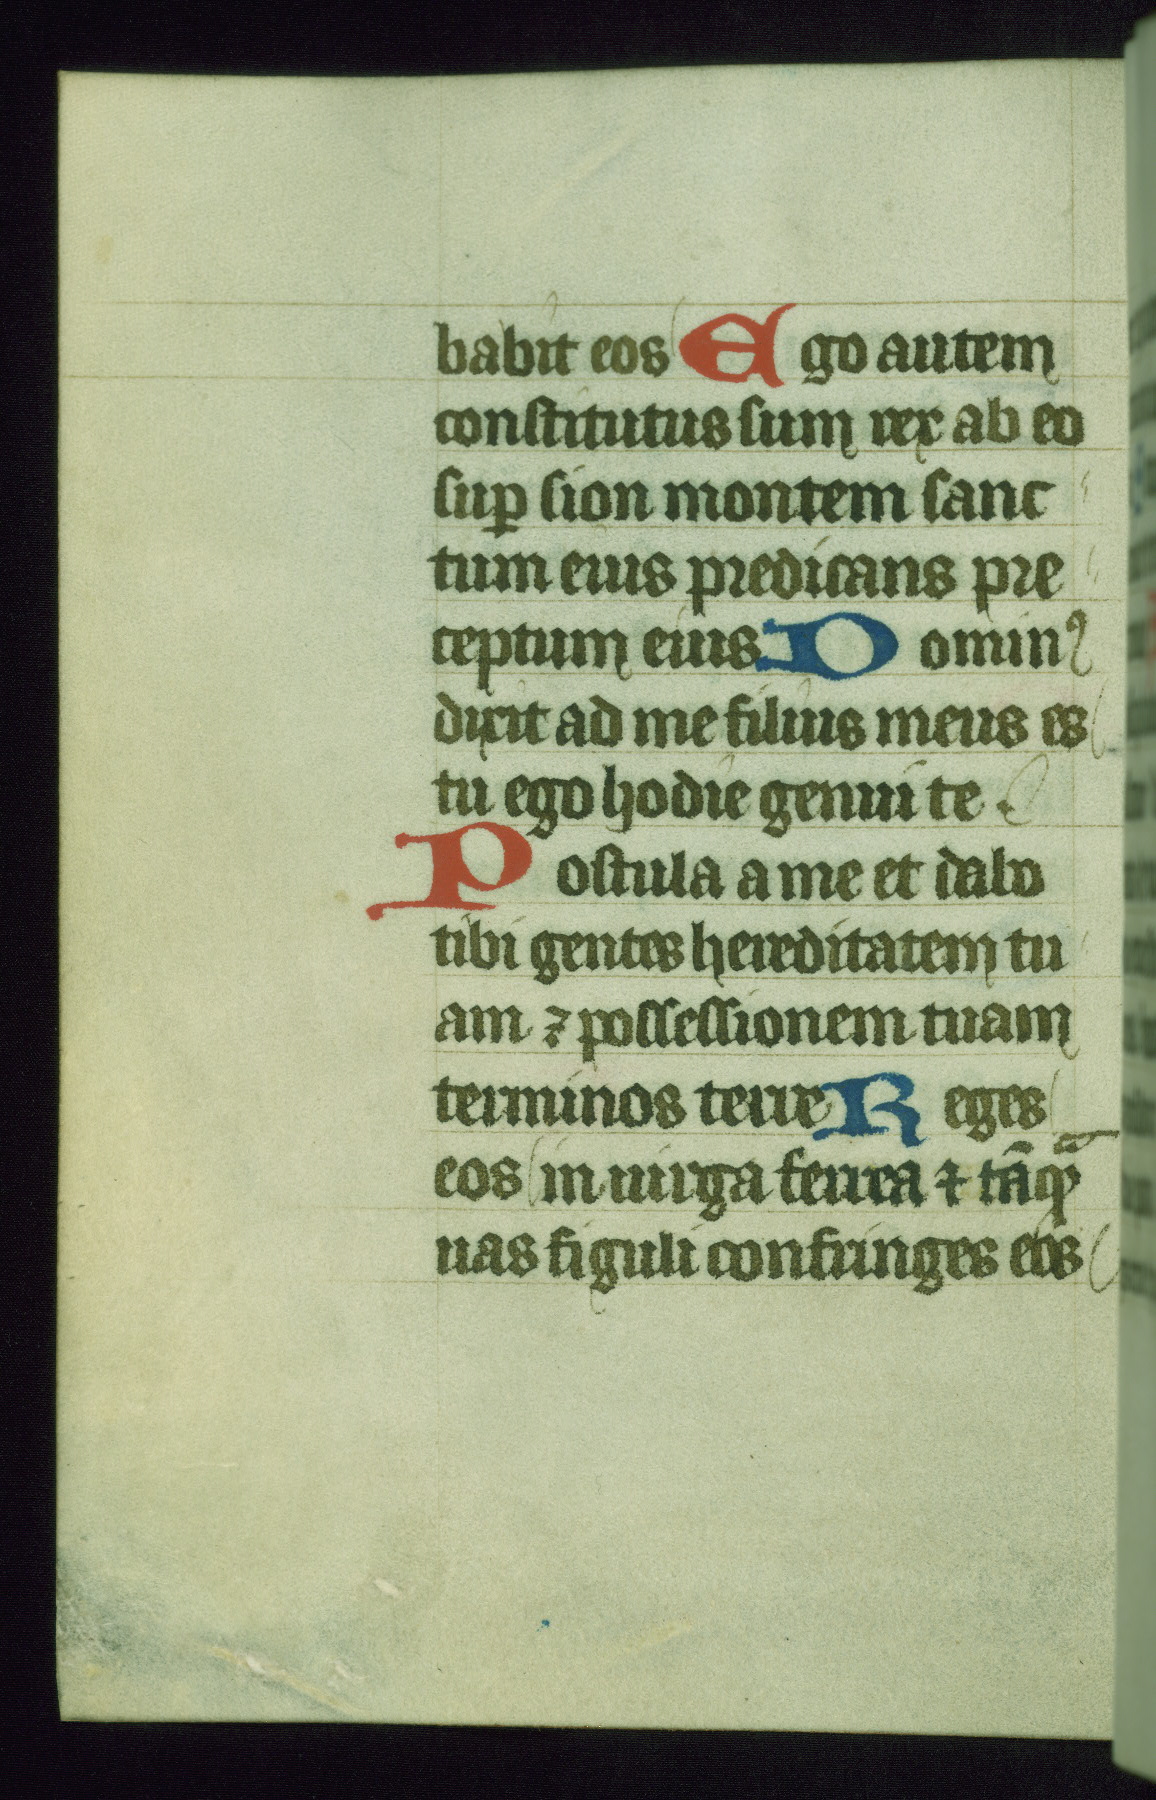 babit eos Ego autem
constitutus sum rex ab eo
suꝑ sion montem sanc
tum eius predicans pre
ceptum eius Dominꝰ
dixit ad me filius meus es
tu ego hodie genui te.
Postula a me et dabo
tibi gentes hereditatem tu
am ⁊ possessionem tuam
terminos terre Reges
eos in uirga ferrea ⁊ tāqᷓ
uas figuli confringes eos